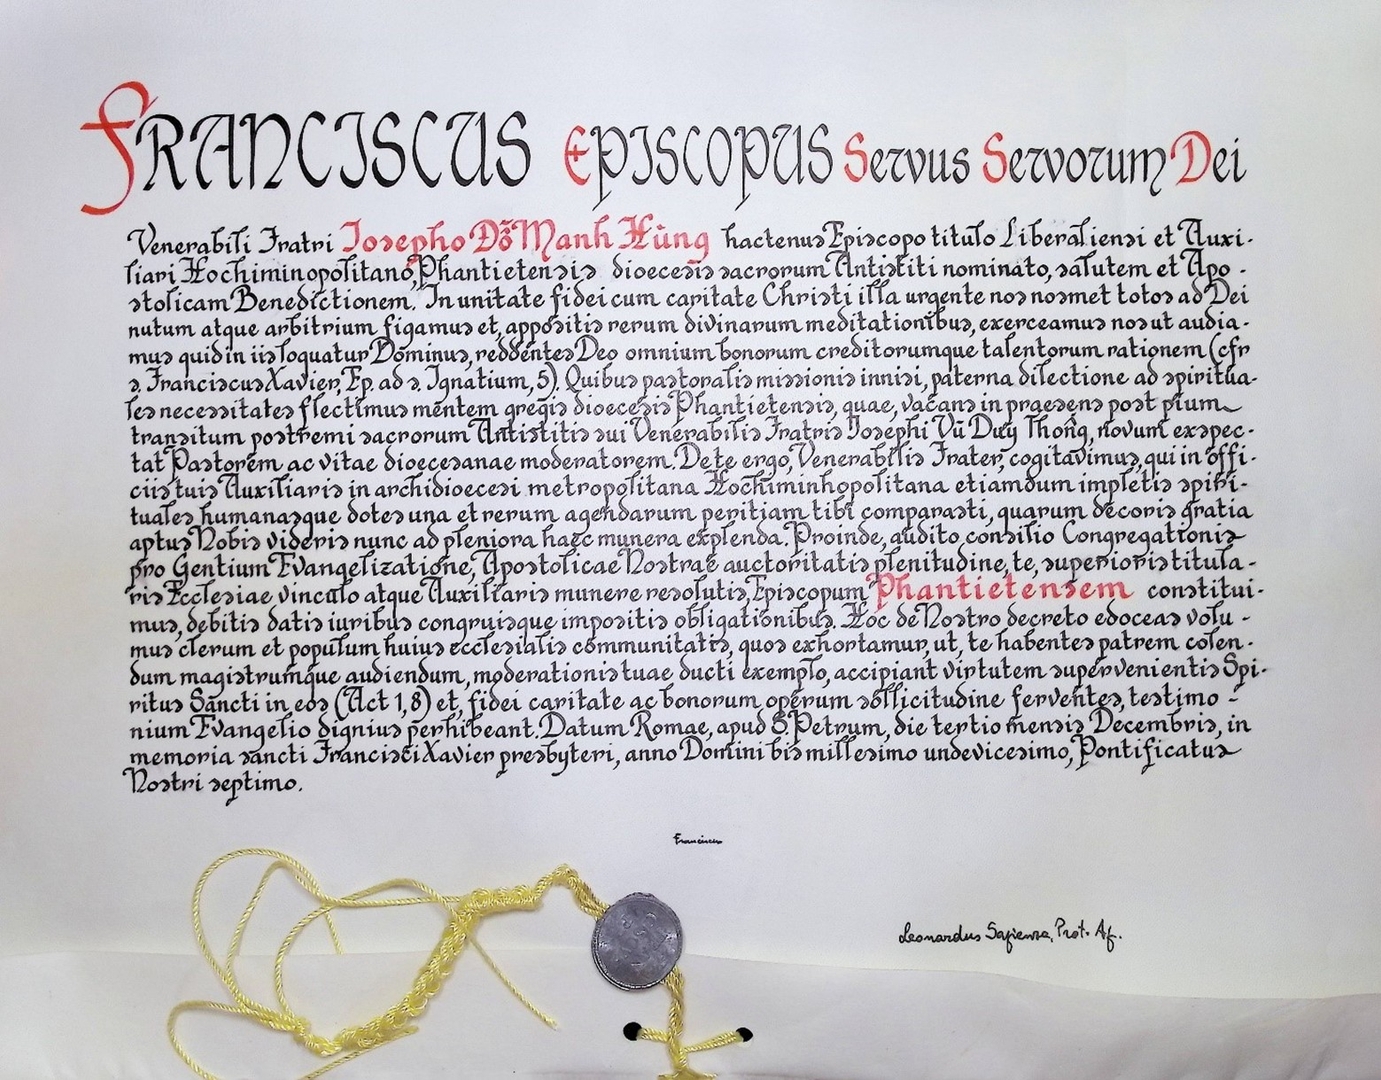 FRANCISCUS EPISCOPUS Servus Servorum Dei
Venerabili Fratri Iosepho Đỗ Manh Hùng hactenus Episcopo titulo Liberaliensi et Auxi-
liari Hochiminopolitano, Phantietensis dioecesis sacrorum Antistiti nominato, salutem et Apo-
stolicam Benedictionem. In unitate fidei cum caritate Christi illa urgente nos nosmet totos ad Dei
nutum atque arbitrium figamus et, appositis rerum divinarum meditationibus, exerceamus nos ut audia-
mus quid in iis loquatur Dominus, reddentes Deo omnium bonorum creditorumque talentorum rationem (cfr
s. Franciscus Xavier, Ep. ad s. Ignatium, 5). Quibus pastoralis missionis innisi, paterna dilectione ad spiritua-
les necessitates flectimus mentem gregis dioecesis Phantietensis, quae, vacans in praesens post pium
transitum postremi sacrorum Antistitis sui Venerabilis Fratris Iosephi Vũ Duy Thống, novum exspec-
tat Pastorem ac vitae dioecesanae moderatorem. De te ergo, Venerabilis Frater, cogitavimus, qui in offi-
ciis tuis Auxiliaris in archidioecesi metropolitana Hochiminhopolitana etiamdum impletis spiri-
tuales humanasque dotes una et rerum agendarum peritiam tibi comparasti, quarum decoris gratia
aptus Nobis videris nunc ad pleniora haec munera explenda. Proinde, audito consilio Congregationis
pro Gentium Evangelizatione, Apostolicae Nostrae auctoritatis plenitudine, te, superioris titula-
ris Ecclesiae vinculo atque Auxiliaris munere resolutis, Episcopum Phantietensem constitui-
mus, debitis datis iuribus congruisque impositis obligationibus. Hoc de Nostro decreto edoceas volu-
mus clerum et populum huius ecclesialis communitatis, quos exhortamur, ut, te habentes patrem colen-
dum magistrumque audiendum, moderationis tuae ducti exemplo, accipiant virtutem supervenientis Spi-
ritus Sancti in eos (Act 1,8) et, fidei caritate ac bonorum operum sollicitudine ferventes, testimo-
nium Evangelio dignius perhibeant. Datum Romae, apud S. Petrum, die tertio mensis Decembris, in
memoria sancti Francisci Xavier presbyteri, anno Domini bis millesimo undevicesimo, Pontificatus
Nostri septimo.
Franciscus
Leonardus Sapienza, Prot. Ap.